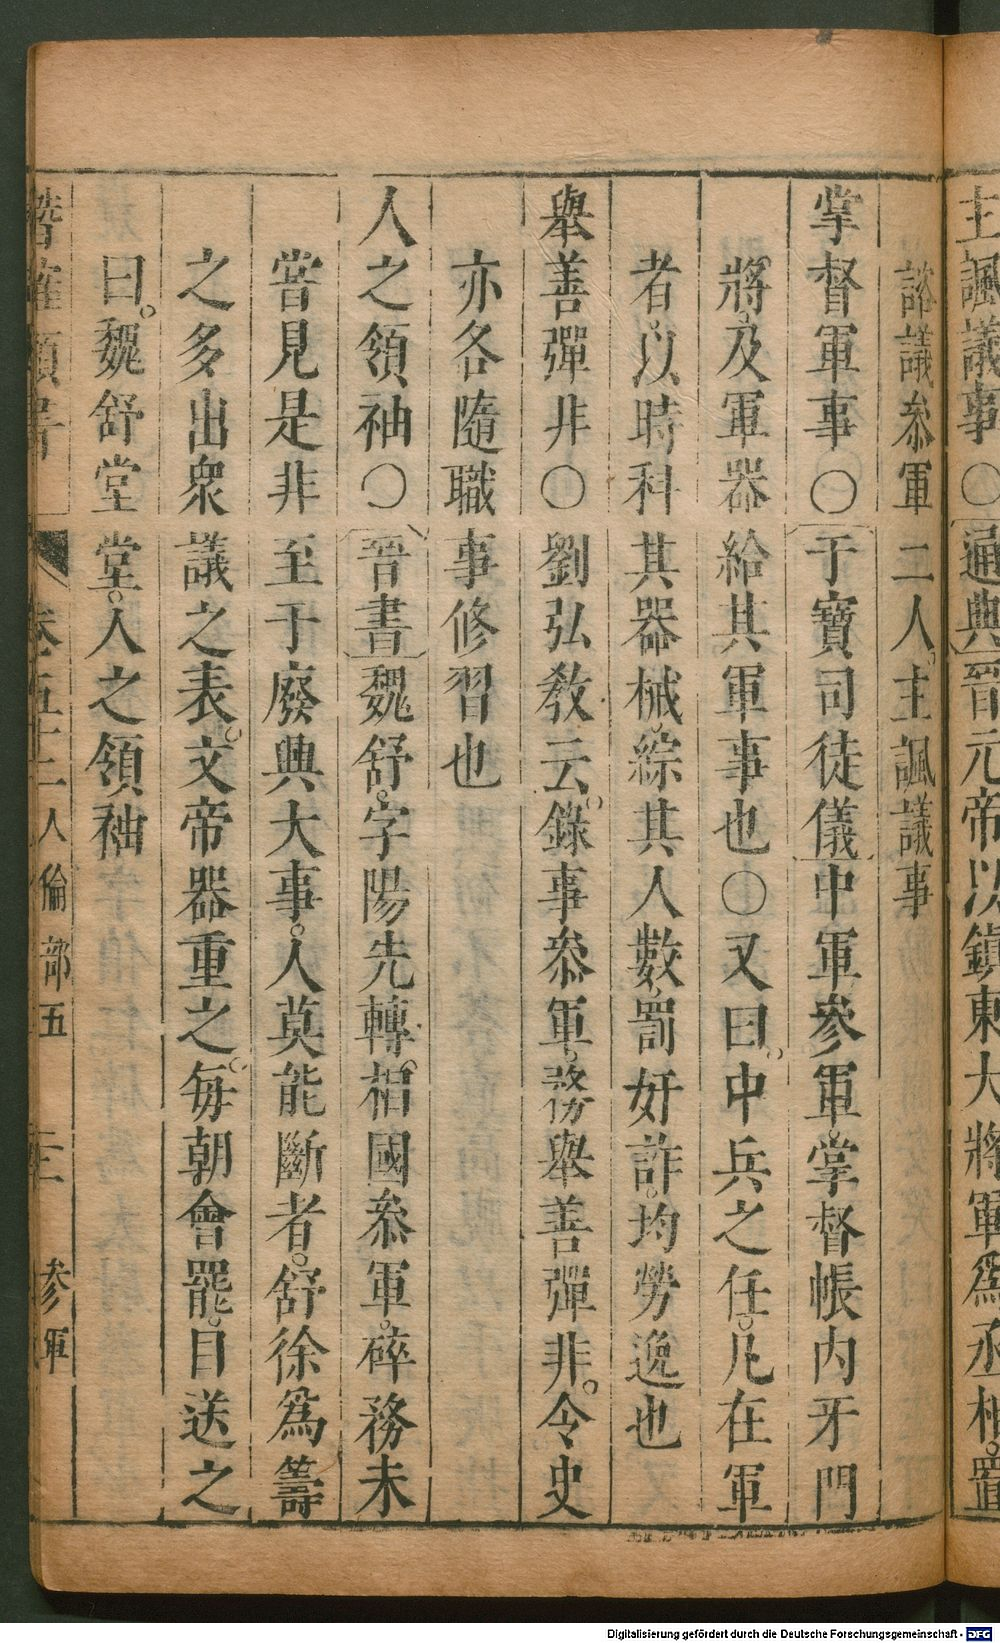 主諷議事○通典晉元帝以鎮東大將軍爲丞相置
諮議叅軍二人主諷議事
掌督軍事○于寶司徒儀中軍參軍掌督帳内牙門
將及軍器給其軍事也○又曰中兵之任凡在軍
者以時科其器械綜其人數罰奸詐均勞逸也
舉善彈非○劉弘敎云錄事叅軍務舉善彈非令史
亦各隨職事修習也
人之領袖○晉書魏舒字陽先轉相國叅軍碎務未
嘗見是非至于廢興大事人莫能斷者舒徐爲籌
之多出衆議之表文帝器重之每朝會罷目送之
曰魏舒堂堂人之領袖
卷五十二人倫部五 三 參軍
Digitalisierung gefördert durch die Deutsche Forschungsgemeinschaft - DFG